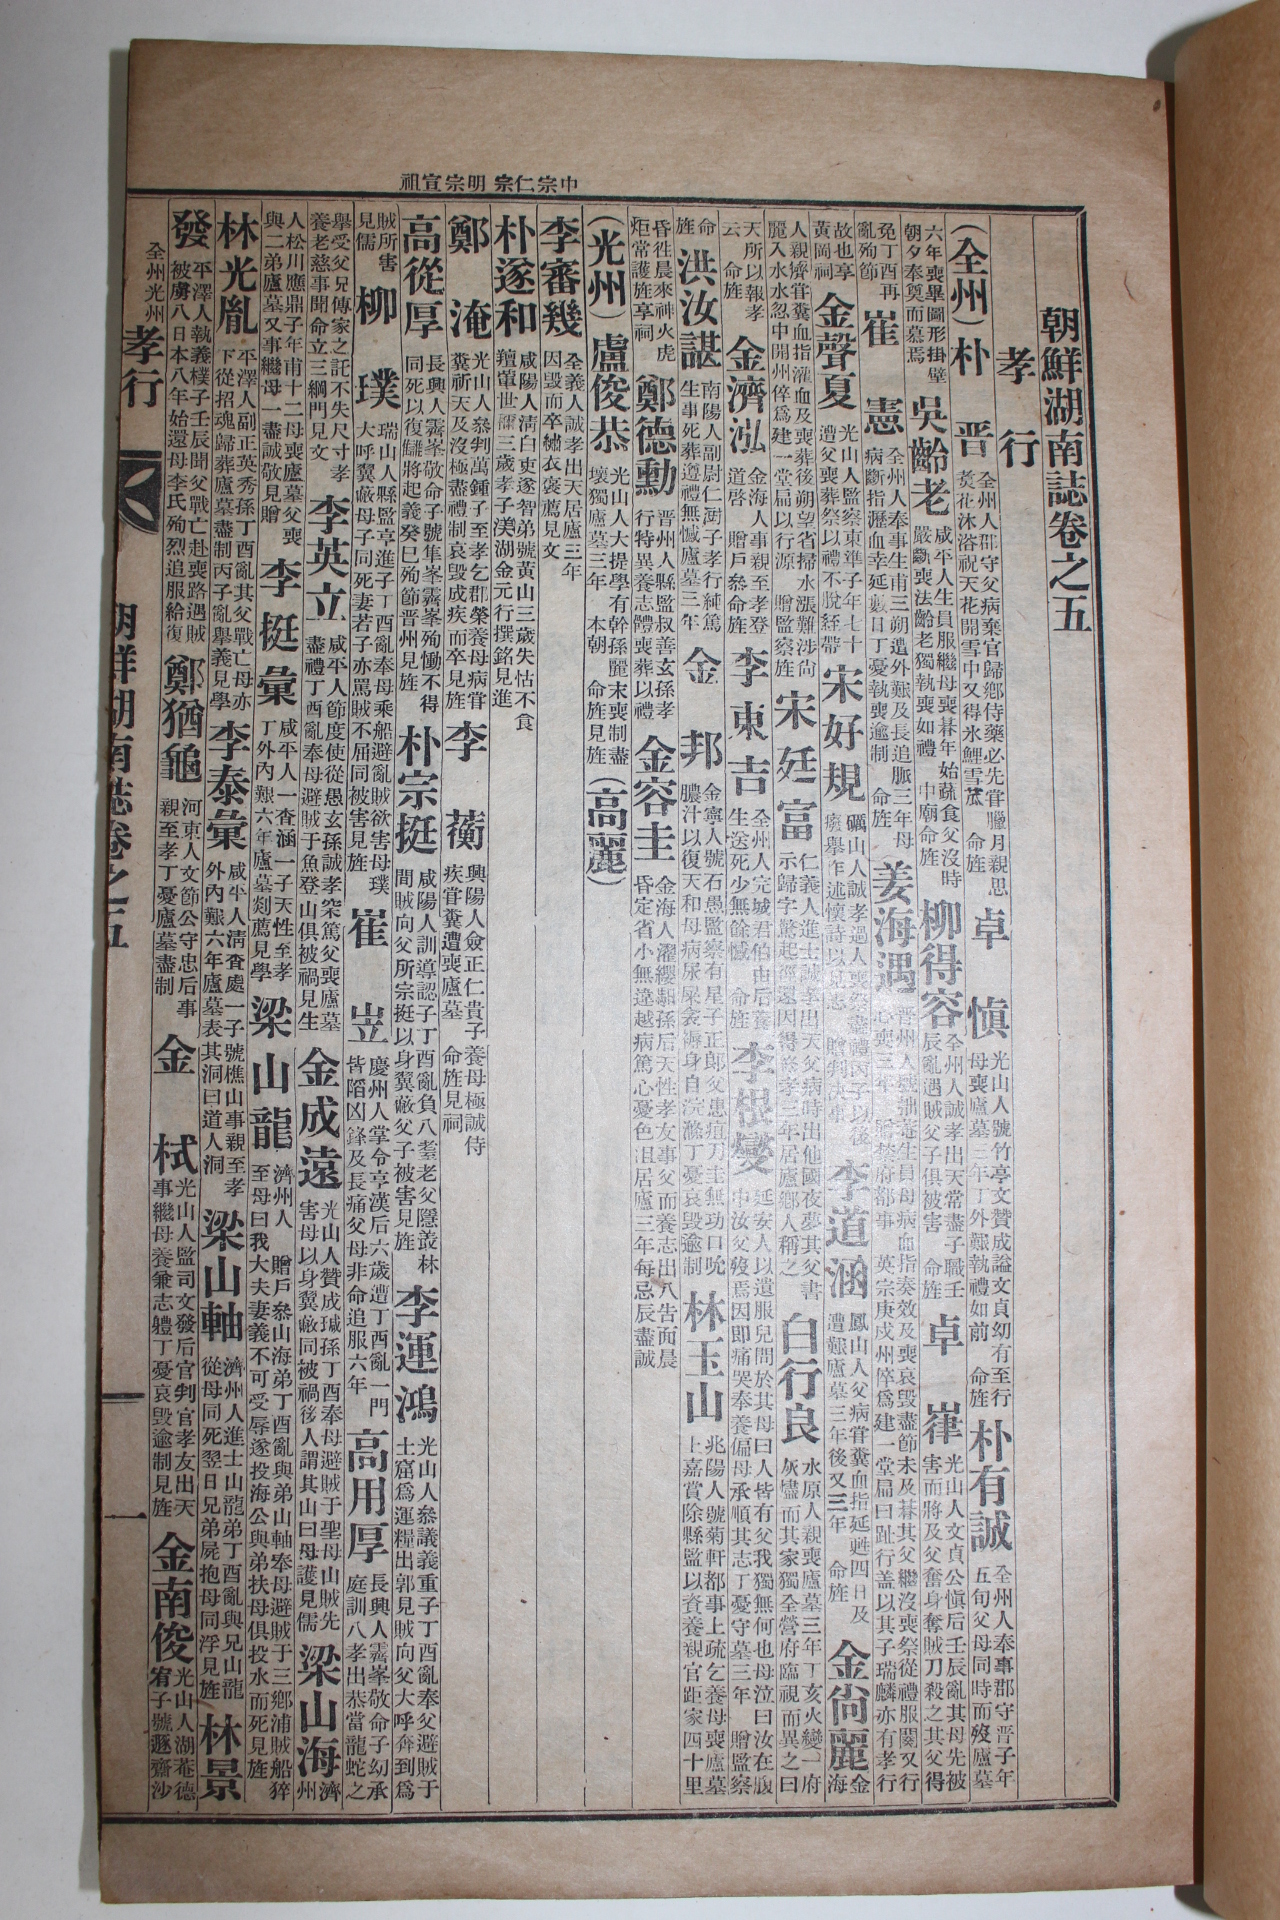 中宗仁宗明宗宣祖
朝鮮湖南誌卷之五
孝行
(全州)朴晋 全州人郡守父病棄官歸鄕侍藥必先甞臘月親思 卓愼 光山人號竹亭文贊成謚文貞幼有至行 母喪廬墓三年丁外艱執禮如前 命旌 朴有誠 全州人奉事郡守晋子年五旬父母同時而歿廬墓
六年喪畢圖形掛壁朝夕奉奠而慕焉 吳齡老 咸平人生員服繼母喪朞年始蔬食父沒時嚴斷喪法齡老獨執喪如禮 中廟命旌 柳得容 全州人誠孝出天常盡子職壬辰亂遇賊父子俱被害 命旌 卓㟳 光山人文貞公愼后壬辰亂其母先被害而將及父奮身奪賊刀殺之其父得
免丁酉再亂殉節 崔憲 全州人奉事生甫三朔遭外艱及長追服三年母病斷指瀝血幸延數日丁憂執喪逾制 命旌 姜海遇
故也享黃岡祠 金聲夏 光山人監察東準子年七十遭父喪葬祭以禮不脫絰帶 宋好規 礪山人誠孝過人喪祭盡禮 李道涵 鳳山人父病甞糞血指延甦四日及遭艱廬墓三年後又三年 命旌 金尙麗 金海
人親癠甞糞血指灌血及喪葬後朔望省掃水漲難涉尙麗入水水忽中開州倅爲建一堂扁以行源 贈監察旌 宋廷富 仁義人進士誠孝出天父病時出他國夜夢其父書示歸字驚起徑還 白行良 水原人親喪廬墓三年丁亥火變一府灰燼而其家獨全營府臨視而異之曰
天所以報孝云 命旌 金濟泓 金海人事親至孝登道啓 贈戶叅命旌 李東吉 全州人完城君伯由后養生送死少無餘憾 命旌 李根燮 延安人以遺服兒問於其母曰人皆有父我獨無何也母泣曰汝在腹中汝父歿焉因卽痛哭奉養偏母承順其志丁憂守墓三年 贈監察
命旌 洪汝諶 南陽人副尉仁㵛子孝行純篤生事死葬遵禮無憾廬墓三年 金邦 金寧人號石愚監察有星子正郞父患疽刀圭無功口吮膿汁以復天和母病尿屎衾褥身自浣滌丁憂哀毁逾制 林玉山 兆陽人號菊軒都事上疏乞養母喪廬墓上嘉賞除縣監以資養親官距家四十里
昏徃晨來神火虎炬常護旌享祠 鄭德勳 晋州人縣監叔善玄孫孝行特異養志體喪葬以禮 金容圭 金海人濯纓馹孫后天性孝友事父而養志出入告面晨昏定省小無違越病篤心憂色沮居廬三年每忌辰盡誠
(光州)盧俊恭 光山人大提學有幹孫麗末喪制盡壞獨廬墓三年 本朝 命旌見旌 (高麗)
李審幾 全義人誠孝出天居廬三年因毁而卒繡衣褒薦見文
朴遂和 咸陽人淸白吏遂智弟號黃山三歲失怙不食羶葷世謂三歲孝子渼湖金元行撰銘見進
鄭淹 光山人叅判萬鍾子至孝乞郡榮養母病甞糞祈天及沒極盡禮制哀毁成疾而卒見旌 李蘅 興陽人僉正仁貴子養母極誠侍疾甞糞遭喪廬墓 命旌見祠
高從厚 長興人霽峯敬命子號隼峯霽峯殉慟不得同死以復讎將起義癸巳殉節晋州見旌 朴宗挺 咸陽人訓導認子丁酉亂負八耋老父隱叢林間賊向父所宗挺以身翼蔽父子被害見旌 李運鴻 光山人叅議義重子丁酉亂奉父避賊于土窟爲運糧出郭見賊向父大呼奔到爲
賊所害見儒 柳璞 瑞山人縣監亨進子丁酉亂奉母乘船避亂賊欲害母璞大呼翼蔽母子同死妻若子亦罵賊不屈同被害見旌 崔岦 慶州人掌令亨漢后六歲遭丁酉亂一門皆陷凶鋒及長痛父母非命追服六年 高用厚 長興人霽峯敬命子幼承庭訓八孝出恭當龍蛇之
擧受父兄傳家之託不失尺寸孝養老慈事聞命立三綱門見文 李英立 咸平人節度使從愚玄孫誠孝深篤父喪廬墓盡禮丁酉亂奉母避賊于魚登山俱被禍見生 金成遠 光山人贊成瑊孫丁酉奉母避賊于聖母山賊先害母以身翼蔽同被禍後人謂其山曰母護見儒 梁山海 濟州
人松川應鼎子年甫十二母喪廬墓父喪與二弟廬墓又事繼母一盡誠敬見贈 李挺彙 咸平人一査涵一子天性至孝丁外內艱六年廬墓剡薦見學 梁山龍 濟州人 贈戶叅山海弟丁酉亂與弟山軸奉母避賊于三鄕浦賊船猝至母曰我大夫妻義不可受辱遂投海公與弟扶母俱投水而死見旌
林光胤 平澤人副正英秀孫丁酉亂其父戰亡母亦下從招魂歸葬廬墓盡制丙子亂擧義見學 李泰彙 咸平人淸査處一子號樵山事親至孝外內艱六年廬墓表其洞曰道人洞 梁山軸 濟州人進士山龍弟丁酉亂與兄山龍從母同死翌日兄弟屍抱母同浮見旌 林景
發 平澤人執義樸子壬辰聞父戰亡赴喪路遇賊被虜入日本八年始還母李氏殉烈追服給復 鄭猶龜 河東人文節公守忠后事親至孝丁憂廬墓盡制 金栻 光山人監司文發后官判官孝友出天事繼母養兼志軆丁憂哀毁逾制見旌 金南俊 光山人湖菴德宥子號遯齋沙
全州光州
孝行 朝鮮湖南誌卷之五 一